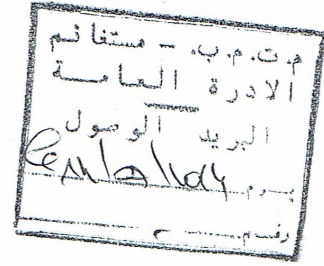 م.ت.م.ب. - مستغانم
الادرة العامـة
البريد الوصول
يـوم
رقـم